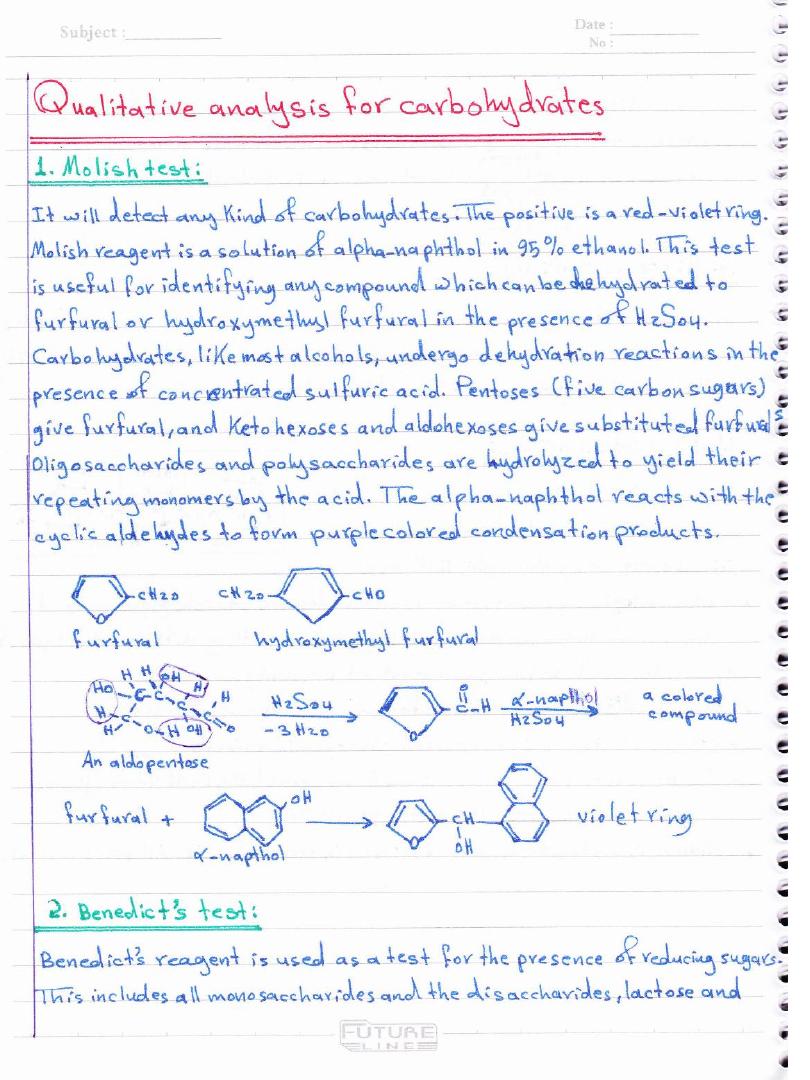 Subject :
Date :
No :
Qualitative analysis for carbohydrates
1. Molish test:
It will detect any Kind of carbohydrates. The positive is a red-violet ring.
Molish reagent is a solution of alpha-naphthol in 95% ethanol. This test
is useful for identifying any compound which can be dehydrated to
furfural or hydroxymethyl furfural in the presence of H2SO4.
Carbohydrates, like most alcohols, undergo dehydration reactions in the
presence of concentrated sulfuric acid. Pentoses (five carbon sugars)
give furfural, and Keto hexoses and aldohexoses give substituted furfurals
Oligosaccharides and polysaccharides are hydrolyzed to yield their
repeating monomers by the acid. The alpha-naphthol reacts with the
cyclic aldehydes to form purple colored condensation products.
O CH2O CH2O CHO
furfural hydroxymethyl furfural
H H OH H H
HO C C C C O
H H C O H OH
H2SO4
-3 H2O
O
O
C-H
α-napthol
H2SO4
a colored
compound
An aldopentose
furfural + OH O CH OH violet ring
α-napthol
2. Benedict's test:
Benedict's reagent is used as a test for the presence of reducing sugars.
This includes all monosaccharides and the disaccharides, lactose and
FUTURE
LINE